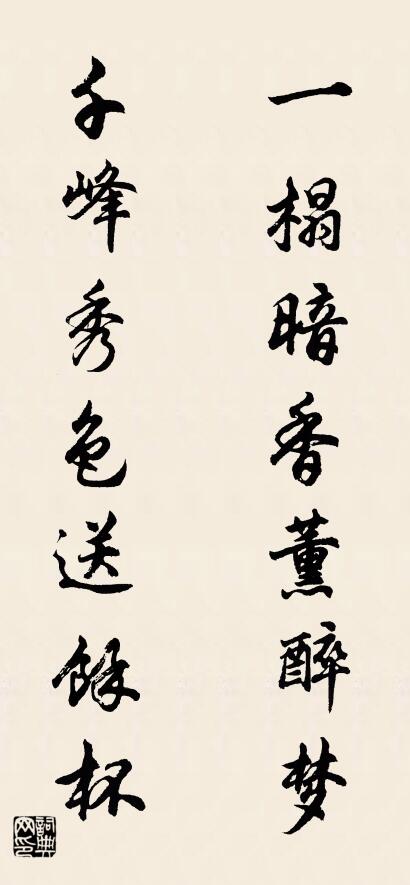 一榻暗香薰醉梦
千峰秀色送馀杯
词典网印